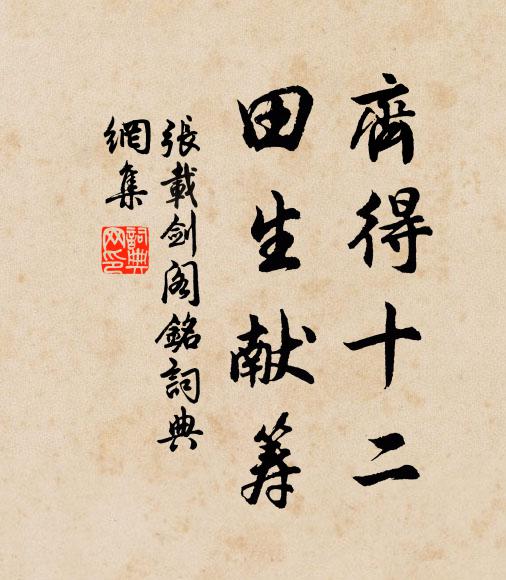 齊得十二
田生献筹
張載剑阁銘詞典
網集
詞典
网印